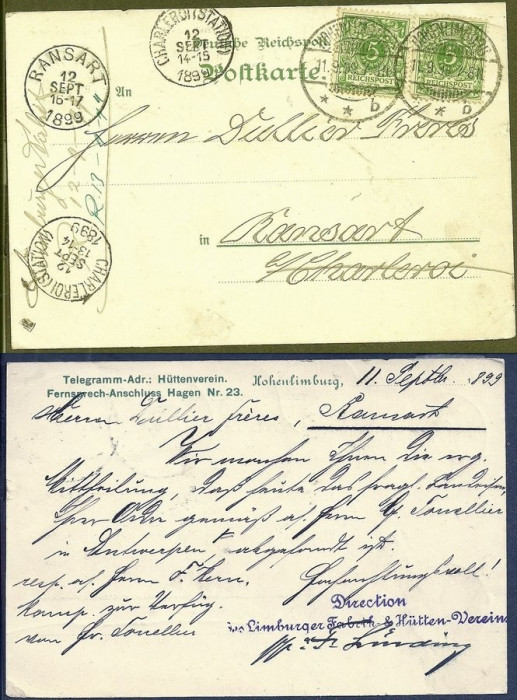 Deutsche Reichspost
Postkarte
An
CHARLEROI (STATION)
12
SEPT
14-15
1899
RANSART
12
SEPT
16-17
1899
HOHENLIMBURG
11.9.99
* * b
5
REICHSPOST
HOHENLIMBURG
11.9.99
* * b
5
REICHSPOST
Herren Dullier Frères
in Ransart
b/Charleroi
CHARLEROI (STATION)
12
SEPT
13-14
1899
Telegramm-Adr.: Hüttenverein.
Fernsprech-Anschluss Hagen Nr. 23.
Hohenlimburg, 11 Septbr. 1899
Herren Dullier Frères, Ransart
Wir machen Ihnen die erg.
Mittheilung, daß heute das fragl.
Ihrer Ordre gemäß a/. Herrn G. Tonellier
in Antwerpen abgesandt ist.
resp. a/. Herrn F. Kern. Hochachtungsvoll!
kamp. zur Verfüg.
von Hr. Tonellier
Direction
des Limburger Fabrik- & Hütten-Vereins